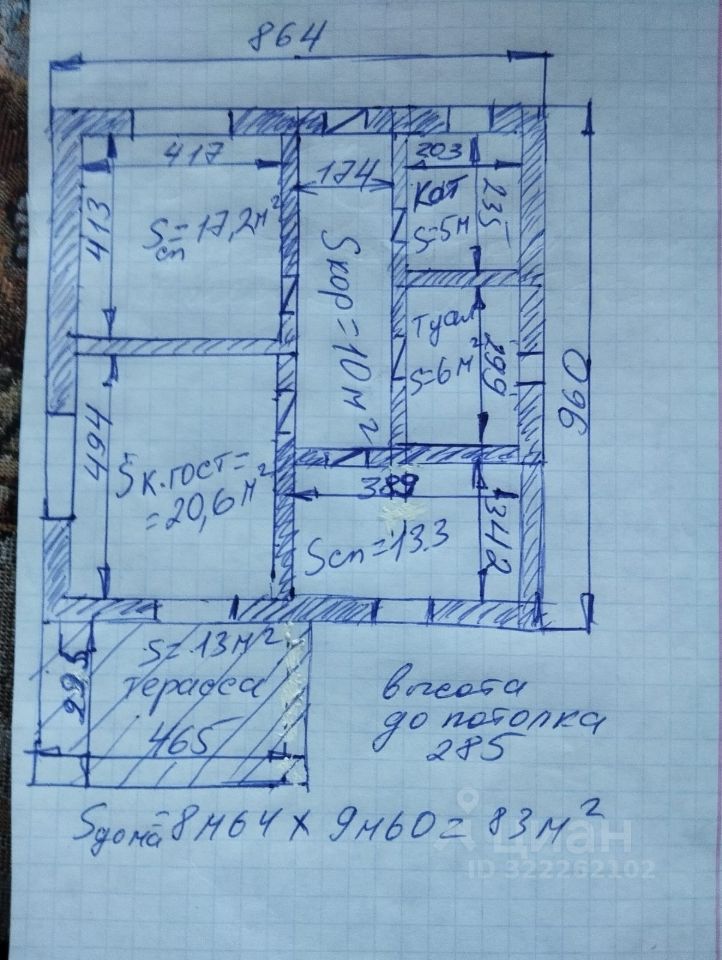 864
417
174
203
413
Sсп=17,2м²
кот
S=5м
235
Sкор=10м²
туал
S=6м²
299
960
494
Sк.гост=
=20,6м²
389
Sсп=13.3
342
S=13м²
терасса
295
465
высота
до потолка
285
Sдома=8м64х9м60=83м²
циан
ID 322262102